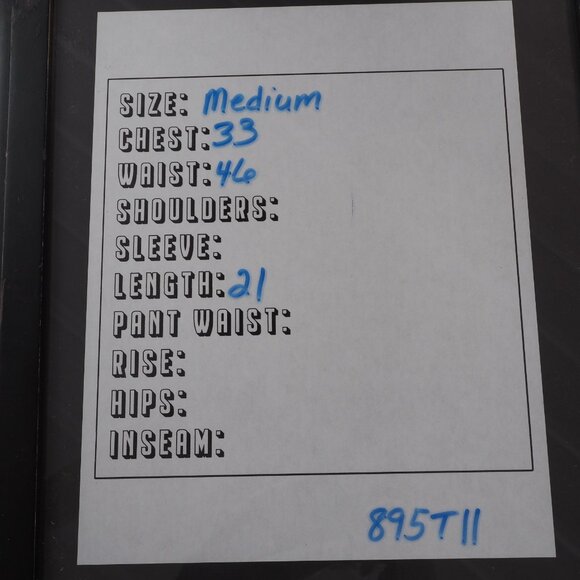 SIZE: Medium
CHEST: 33
WAIST: 46
SHOULDERS:
SLEEVE:
LENGTH: 21
PANT WAIST:
RISE:
HIPS:
INSEAM:
895T11